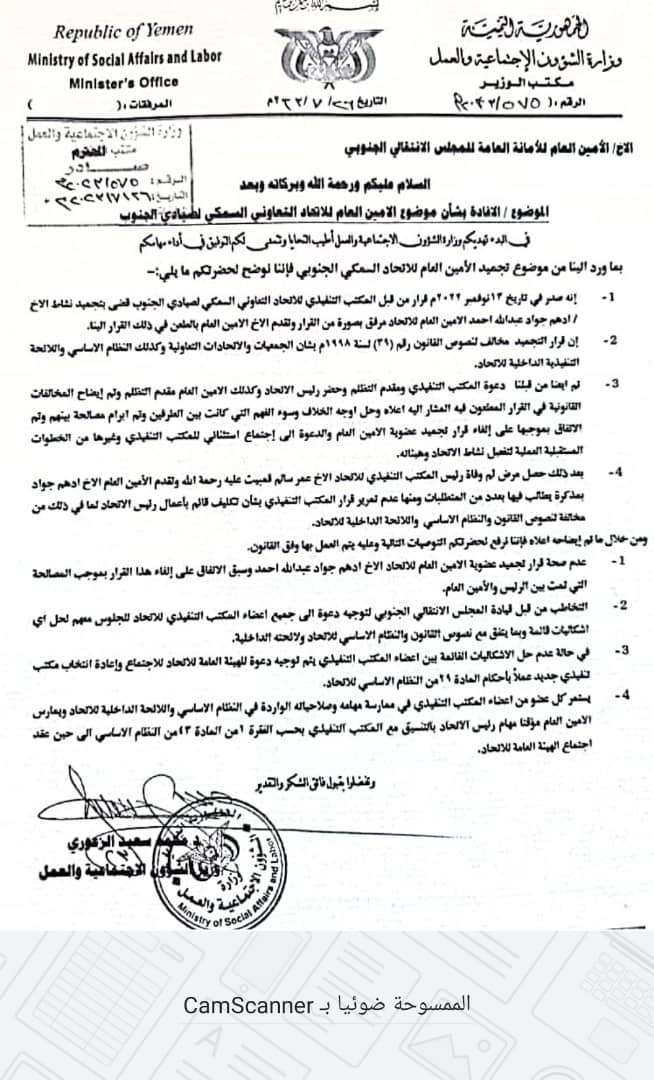 بسم الله الرحمن الرحيم
Republic of Yemen
Ministry of Social Affairs and Labor
Minister's Office
الجمهورية اليمنية
وزارة الشؤون الإجتماعية والعمل
مكتب الوزير
المرفقات: ( )
التاريخ
الرقم:
وزارة الشؤون الإجتماعية والعمل
مكتب
صادر
الرقم:
التاريخ:
المحترم
الاخ/ الأمين العام للأمانة العامة للمجلس الانتقالي الجنوبي
السلام عليكم ورحمة الله وبركاته وبعد
الموضوع / الافادة بشأن موضوع الامين العام للاتحاد التعاوني السمكي لصيادي الجنوب
في البدء تهديكم وزارة الشؤون الاجتماعية والعمل أطيب التحايا وتتمنى لكم التوفيق في أداء مهامكم
بما ورد الينا من موضوع تجميد الأمين العام للاتحاد السمكي الجنوبي فإننا نوضح لحضرتكم ما يلي:-
1- إنه صدر في تاريخ ١٣ نوفمبر ٢٠٢٢م قرار من قبل المكتب التنفيذي للاتحاد التعاوني السمكي لصيادي الجنوب قضى بتجميد نشاط الاخ
/ ادهم جواد عبدالله احمد الامين العام للاتحاد مرفق بصورة من القرار وتقدم الاخ الامين العام بالطعن في ذلك القرار الينا.
2- إن قرار التجميد مخالف لنصوص القانون رقم (٣٩) لسنة ١٩٩٨م بشان الجمعيات والاتحادات التعاونية وكذلك النظام الاساسي واللائحة
التنفيذية الداخلية للاتحاد.
3- تم ايضا من قبلنا دعوة المكتب التنفيذي ومقدم التظلم وحضر رئيس الاتحاد وكذلك الامين العام مقدم التظلم وتم إيضاح المخالفات
القانونية في القرار المطعون فيه المشار اليه اعلاه وحل اوجه الخلاف وسوء الفهم التي كانت بين الطرفين وتم ابرام مصالحة بينهم وتم
الاتفاق بموجبها على إلغاء قرار تجميد عضوية الامين العام والدعوة الى إجتماع استثنائي للمكتب التنفيذي وغيرها من الخطوات
المستقبلية العملية لتفعيل نشاط الاتحاد وهيئاته.
4- بعد ذلك حصل مرض ثم وفاة رئيس المكتب التنفيذي للاتحاد الاخ عمر سالم قمبيت عليه رحمة الله وتقدم الأمين العام الاخ ادهم جواد
بمذكرة يطالب فيها بعدد من المتطلبات ومنها عدم تمرير قرار المكتب التنفيذي بشأن تكليف قائم بأعمال رئيس الاتحاد لما في ذلك من
مخالفة لنصوص القانون والنظام الاساسي واللائحة الداخلية للاتحاد.
ومن خلال ما تم إيضاحه اعلاه فإننا نرفع لحضرتكم التوصيات التالية وعليه يتم العمل بها وفق القانون.
1- عدم صحة قرار تجميد عضوية الامين العام للاتحاد الاخ ادهم جواد عبدالله احمد وسبق الاتفاق على إلغاء هذا القرار بموجب المصالحة
التي تمت بين الرئيس والأمين العام.
2- التخاطب من قبل قيادة المجلس الانتقالي الجنوبي لتوجيه دعوة الى جميع اعضاء المكتب التنفيذي للاتحاد للجلوس معهم لحل أي
اشكاليات قائمة وبما يتفق مع نصوص القانون والنظام الاساسي للاتحاد ولائحته الداخلية.
3- في حالة عدم حل الاشكاليات القائمة بين اعضاء المكتب التنفيذي يتم توجيه دعوة للهيئة العامة للاتحاد للاجتماع وإعادة انتخاب مكتب
تنفيذي جديد عملاً بأحكام المادة ٢٩ من النظام الاساسي للاتحاد.
4- يستمر كل عضو من اعضاء المكتب التنفيذي في ممارسة مهامه وصلاحياته الواردة في النظام الاساسي واللائحة الداخلية للاتحاد ويمارس
الامين العام مؤقتا مهام رئيس الاتحاد بالتنسيق مع المكتب التنفيذي بحسب الفقرة ١ من المادة ٤٣ من النظام الاساسي الى حين عقد
اجتماع الهيئة العامة للاتحاد.
وتفضلوا بقبول فائق الشكر والتقدير
د. محمد سعيد الزعوري
وزير الشؤون الاجتماعية والعمل
وزارة الشؤون الإجتماعية والعمل
Ministry of Social Affairs and Labor
الممسوحة ضوئيا بـ CamScanner